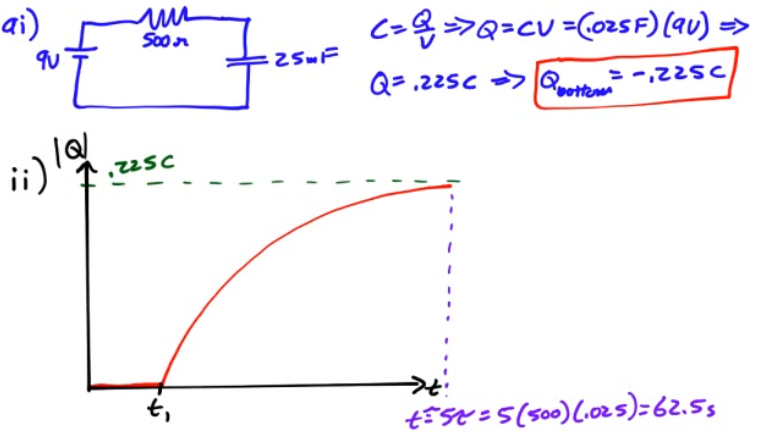 ai)
500Ω
9V
25mF
C = Q/V => Q = CV = (.025F)(9V) =>
Q = .225C => Qbottom = -.225C
ii)
|Q|
.225C
t
t₁
t ≈ 5τ = 5(500)(.025) = 62.5s